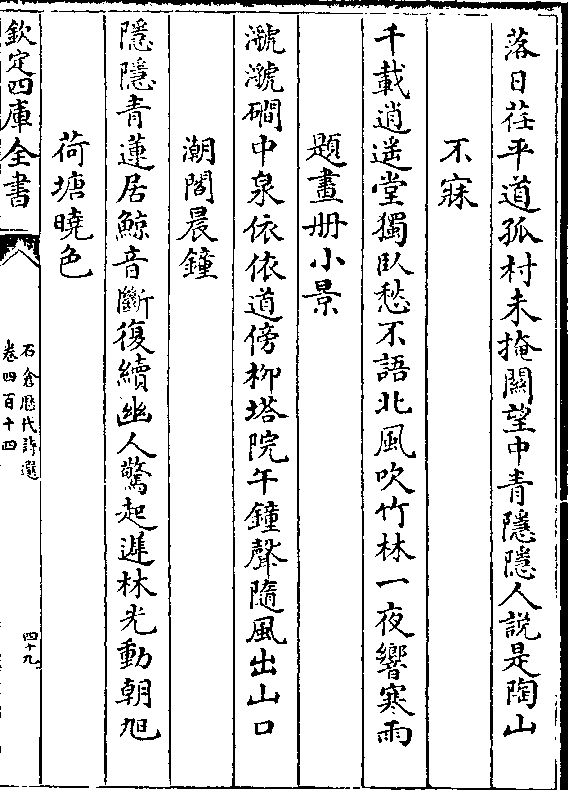 落日茌平道孤村未掩關望中青隱隱人説是陶山
不寐
千載逍遥堂獨臥愁不語北風吹竹林一夜響寒雨
題畫册小景
㶁㶁磵中泉依依道傍柳塔院午鐘聲隨風出山口
潮閣晨鐘
隱隱青蓮居鯨音斷復續幽人驚起遲林光動朝旭
荷塘曉色
欽定四庫全書
石倉歴代詩選
卷四百十四
四十九